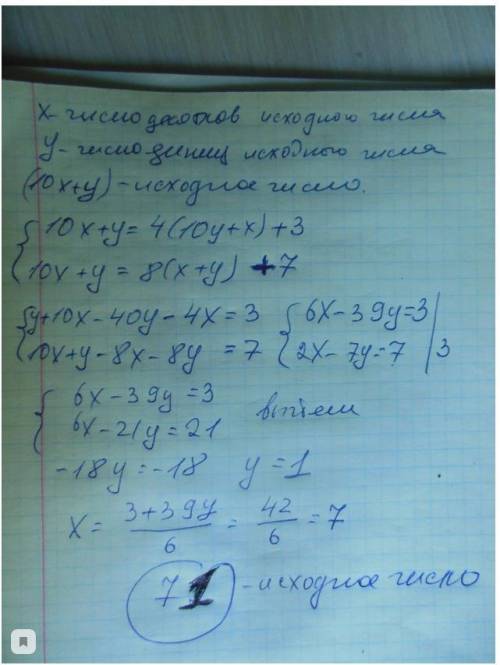 x - число десятков исходного числа
y - число единиц исходного числа
(10x+y) - исходное число.
10x+y = 4(10y+x)+3
10x+y = 8(x+y)+7
y+10x-40y-4x=3 6x-39y=3
10x+y-8x-8y=7 2x-7y=7 | 3
6x-39y=3
6x-21y=21 вычтем
-18y=-18 y=1
x = (3+39y)/6 = 42/6 = 7
71 - исходное число